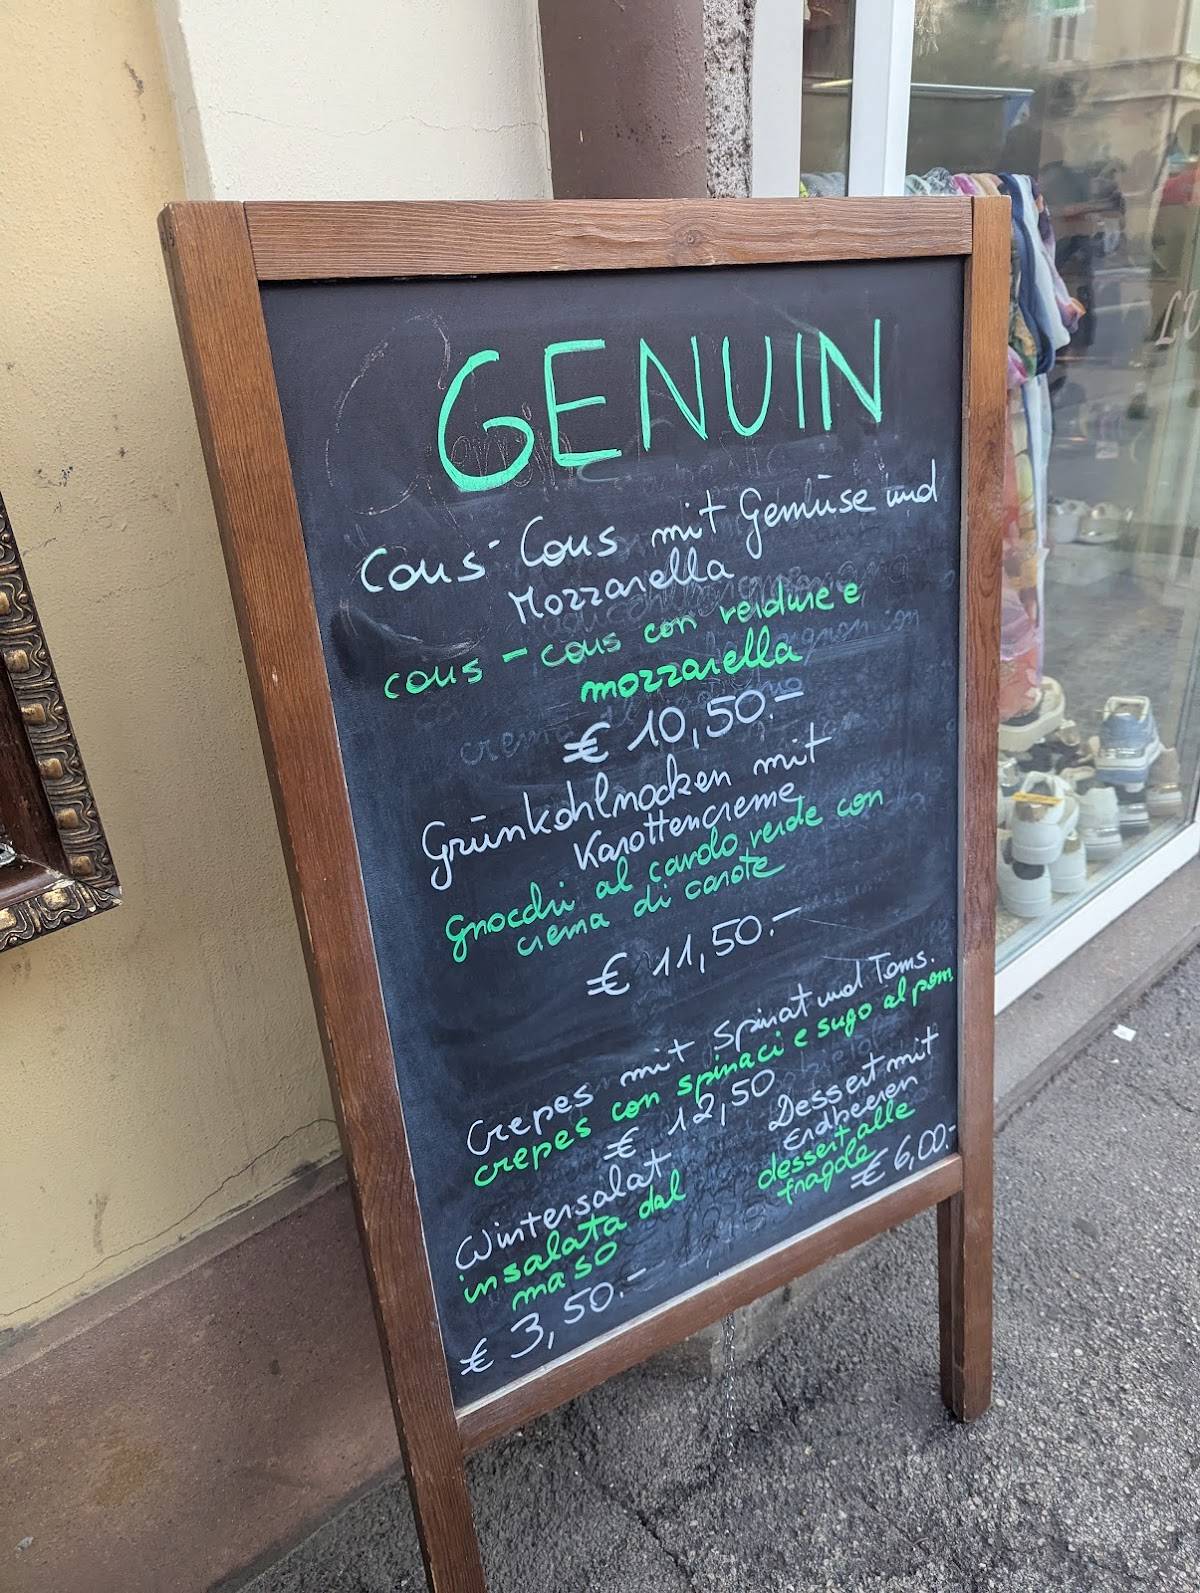 GENUIN
Cous-Cous mit Gemüse und
Mozzarella
cous-cous con verdure e
mozzarella
€ 10,50.-
Grünkohlnocken mit
Karottencreme
gnocchi al cavolo verde con
crema di carote
€ 11,50.-
Crepes mit Spinat und Toms.
crepes con spinaci e sugo al pom
€ 12,50
Wintersalat
insalata dal
maso
€ 3,50.-
Dessert mit
Erdbeeren
dessert alle
fragole
€ 6,00.-